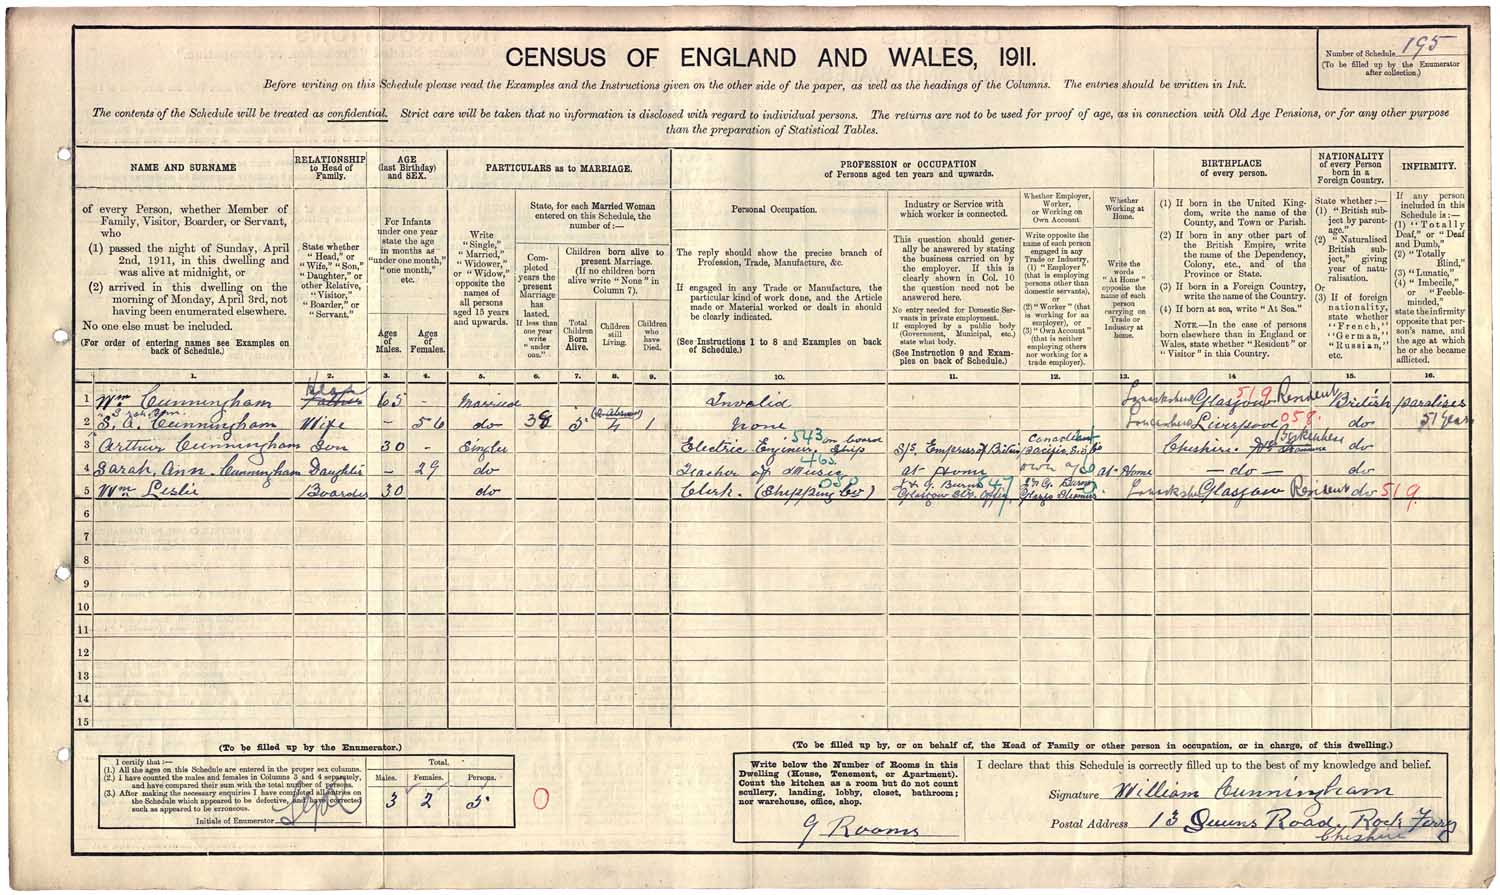 CENSUS OF ENGLAND AND WALES, 1911.
Number of Schedule 195
(To be filled up by the Enumerator
after collection.)
Before writing on this Schedule please read the Examples and the Instructions given on the other side of the paper, as well as the headings of the Columns. The entries should be written in Ink.
The contents of the Schedule will be treated as confidential. Strict care will be taken that no information is disclosed with regard to individual persons. The returns are not to be used for proof of age, as in connection with Old Age Pensions, or for any other purpose
than the preparation of Statistical Tables.
NAME AND SURNAME
of every Person, whether Member of
Family, Visitor, Boarder, or Servant,
who
(1) passed the night of Sunday, April
2nd, 1911, in this dwelling and
was alive at midnight, or
(2) arrived in this dwelling on the
morning of Monday, April 3rd, not
having been enumerated elsewhere.
No one else must be included.
(For order of entering names see Examples on
back of Schedule.)
RELATIONSHIP
to Head of
Family.
State whether
"Head," or
"Wife," "Son,"
"Daughter," or
other Relative,
"Visitor,"
"Boarder," or
"Servant."
AGE
(last Birthday)
and SEX.
For Infants
under one year
state the age
in months as
"under one month,"
"one month,"
etc.
Ages
of
Males.
Ages
of
Females.
PARTICULARS as to MARRIAGE.
Write
"Single,"
"Married,"
"Widower,"
or "Widow,"
opposite the
names of
all persons
aged 15 years
and upwards.
State, for each Married Woman
entered on this Schedule, the
number of:—
Completed
years the
present
Marriage
has
lasted.
If less than
one year
write
"under
one."
Children born alive to
present Marriage.
(If no children born
alive write "None" in
Column 7).
Total
Children
Born
Alive.
Children
still
Living.
Children
who
have
Died.
PROFESSION or OCCUPATION
of Persons aged ten years and upwards.
Personal Occupation.
The reply should show the precise branch of
Profession, Trade, Manufacture, &c.
If engaged in any Trade or Manufacture, the
particular kind of work done, and the Article
made or Material worked or dealt in should
be clearly indicated.
(See Instructions 1 to 8 and Examples on back
of Schedule.)
Industry or Service with
which worker is connected.
This question should gener-
ally be answered by stating
the business carried on by
the employer. If this is
clearly shown in Col. 10
the question need not be
answered here.
No entry needed for Domestic Ser-
vants in private employment.
If employed by a public body
(Government, Municipal, etc.)
state what body.
(See Instruction 9 and Exam-
ples on back of Schedule.)
Whether Employer,
Worker,
or Working on
Own Account
Write opposite the
name of each person
engaged in any
Trade or Industry,
(1) "Employer"
(that is employing
persons other than
domestic servants),
or
(2) "Worker" (that
is working for an
employer), or
(3) "Own Account"
(that is neither
employing others
nor working for a
trade employer).
Whether
Working at
Home.
Write the
words
"At Home"
opposite the
name of each
person
carrying on
Trade or
Industry at
home.
BIRTHPLACE
of every person.
(1) If born in the United King-
dom, write the name of the
County, and Town or Parish.
(2) If born in any other part of
the British Empire, write
the name of the Dependency,
Colony, etc., and of the
Province or State.
(3) If born in a Foreign Country,
write the name of the Country.
(4) If born at sea, write "At Sea."
NOTE.—In the case of persons
born elsewhere than in England or
Wales, state whether "Resident" or
"Visitor" in this Country.
NATIONALITY
of every Person
born in a
Foreign Country.
State whether:—
(1) "British sub-
ject by parent-
age."
(2) "Naturalised
British sub-
ject," giving
year of natu-
ralisation.
Or
(3) If of foreign
nationality,
state whether
"French,"
"German,"
"Russian,"
etc.
INFIRMITY.
If any person
included in this
Schedule is:—
(1) "Totally
Deaf," or "Deaf
and Dumb,"
(2) "Totally
Blind,"
(3) "Lunatic,"
(4) "Imbecile,"
or "Feeble-
minded,"
state the infirmity
opposite that per-
son's name, and
the age at which
he or she became
afflicted.
1. 2. 3. 4. 5. 6. 7. 8. 9. 10. 11. 12. 13. 14. 15. 16.
1 Wm Cunningham Head Father 65 - Married Invalid Lanarkshire Glasgow 519 Resident British paralises
2 S. A. Cunningham Wife - 56 do 38 5 4 1 None Lancashire Liverpool 058 do 51 Years
3 Arthur Cunningham Son 30 - Single Electric Engineer 543 on board Ship S/S. Empress of Britain Canadian Pacific Cheshire Birkenhead do
4 Sarah Ann Cunningham Daughter - 29 do Teacher of Music 465 at Home own a/c at Home - do - do
5 Wm Leslie Boarder 30 do Clerk. (Shipping Co) J & G. Burns Glasgow Lanarkshire Glasgow Resident do 519
6
7
8
9
10
11
12
13
14
15
(To be filled up by the Enumerator.)
I certify that:—
(1.) All the ages on this Schedule are entered in the proper sex columns.
(2.) I have counted the males and females in Columns 3 and 4 separately,
and have compared their sum with the total number of persons.
(3.) After making the necessary enquiries I have completed all entries on
the Schedule which appeared to be defective, and have corrected
such as appeared to be erroneous.
Initials of Enumerator
Total.
Males. Females. Persons.
3 2 5
0
(To be filled up by, or on behalf of, the Head of Family or other person in occupation, or in charge, of this dwelling.)
Write below the Number of Rooms in this
Dwelling (House, Tenement, or Apartment).
Count the kitchen as a room but do not count
scullery, landing, lobby, closet, bathroom;
nor warehouse, office, shop.
9 Rooms
I declare that this Schedule is correctly filled up to the best of my knowledge and belief.
Signature William Cunningham
Postal Address 13 Queens Road Rock Ferry
Cheshire